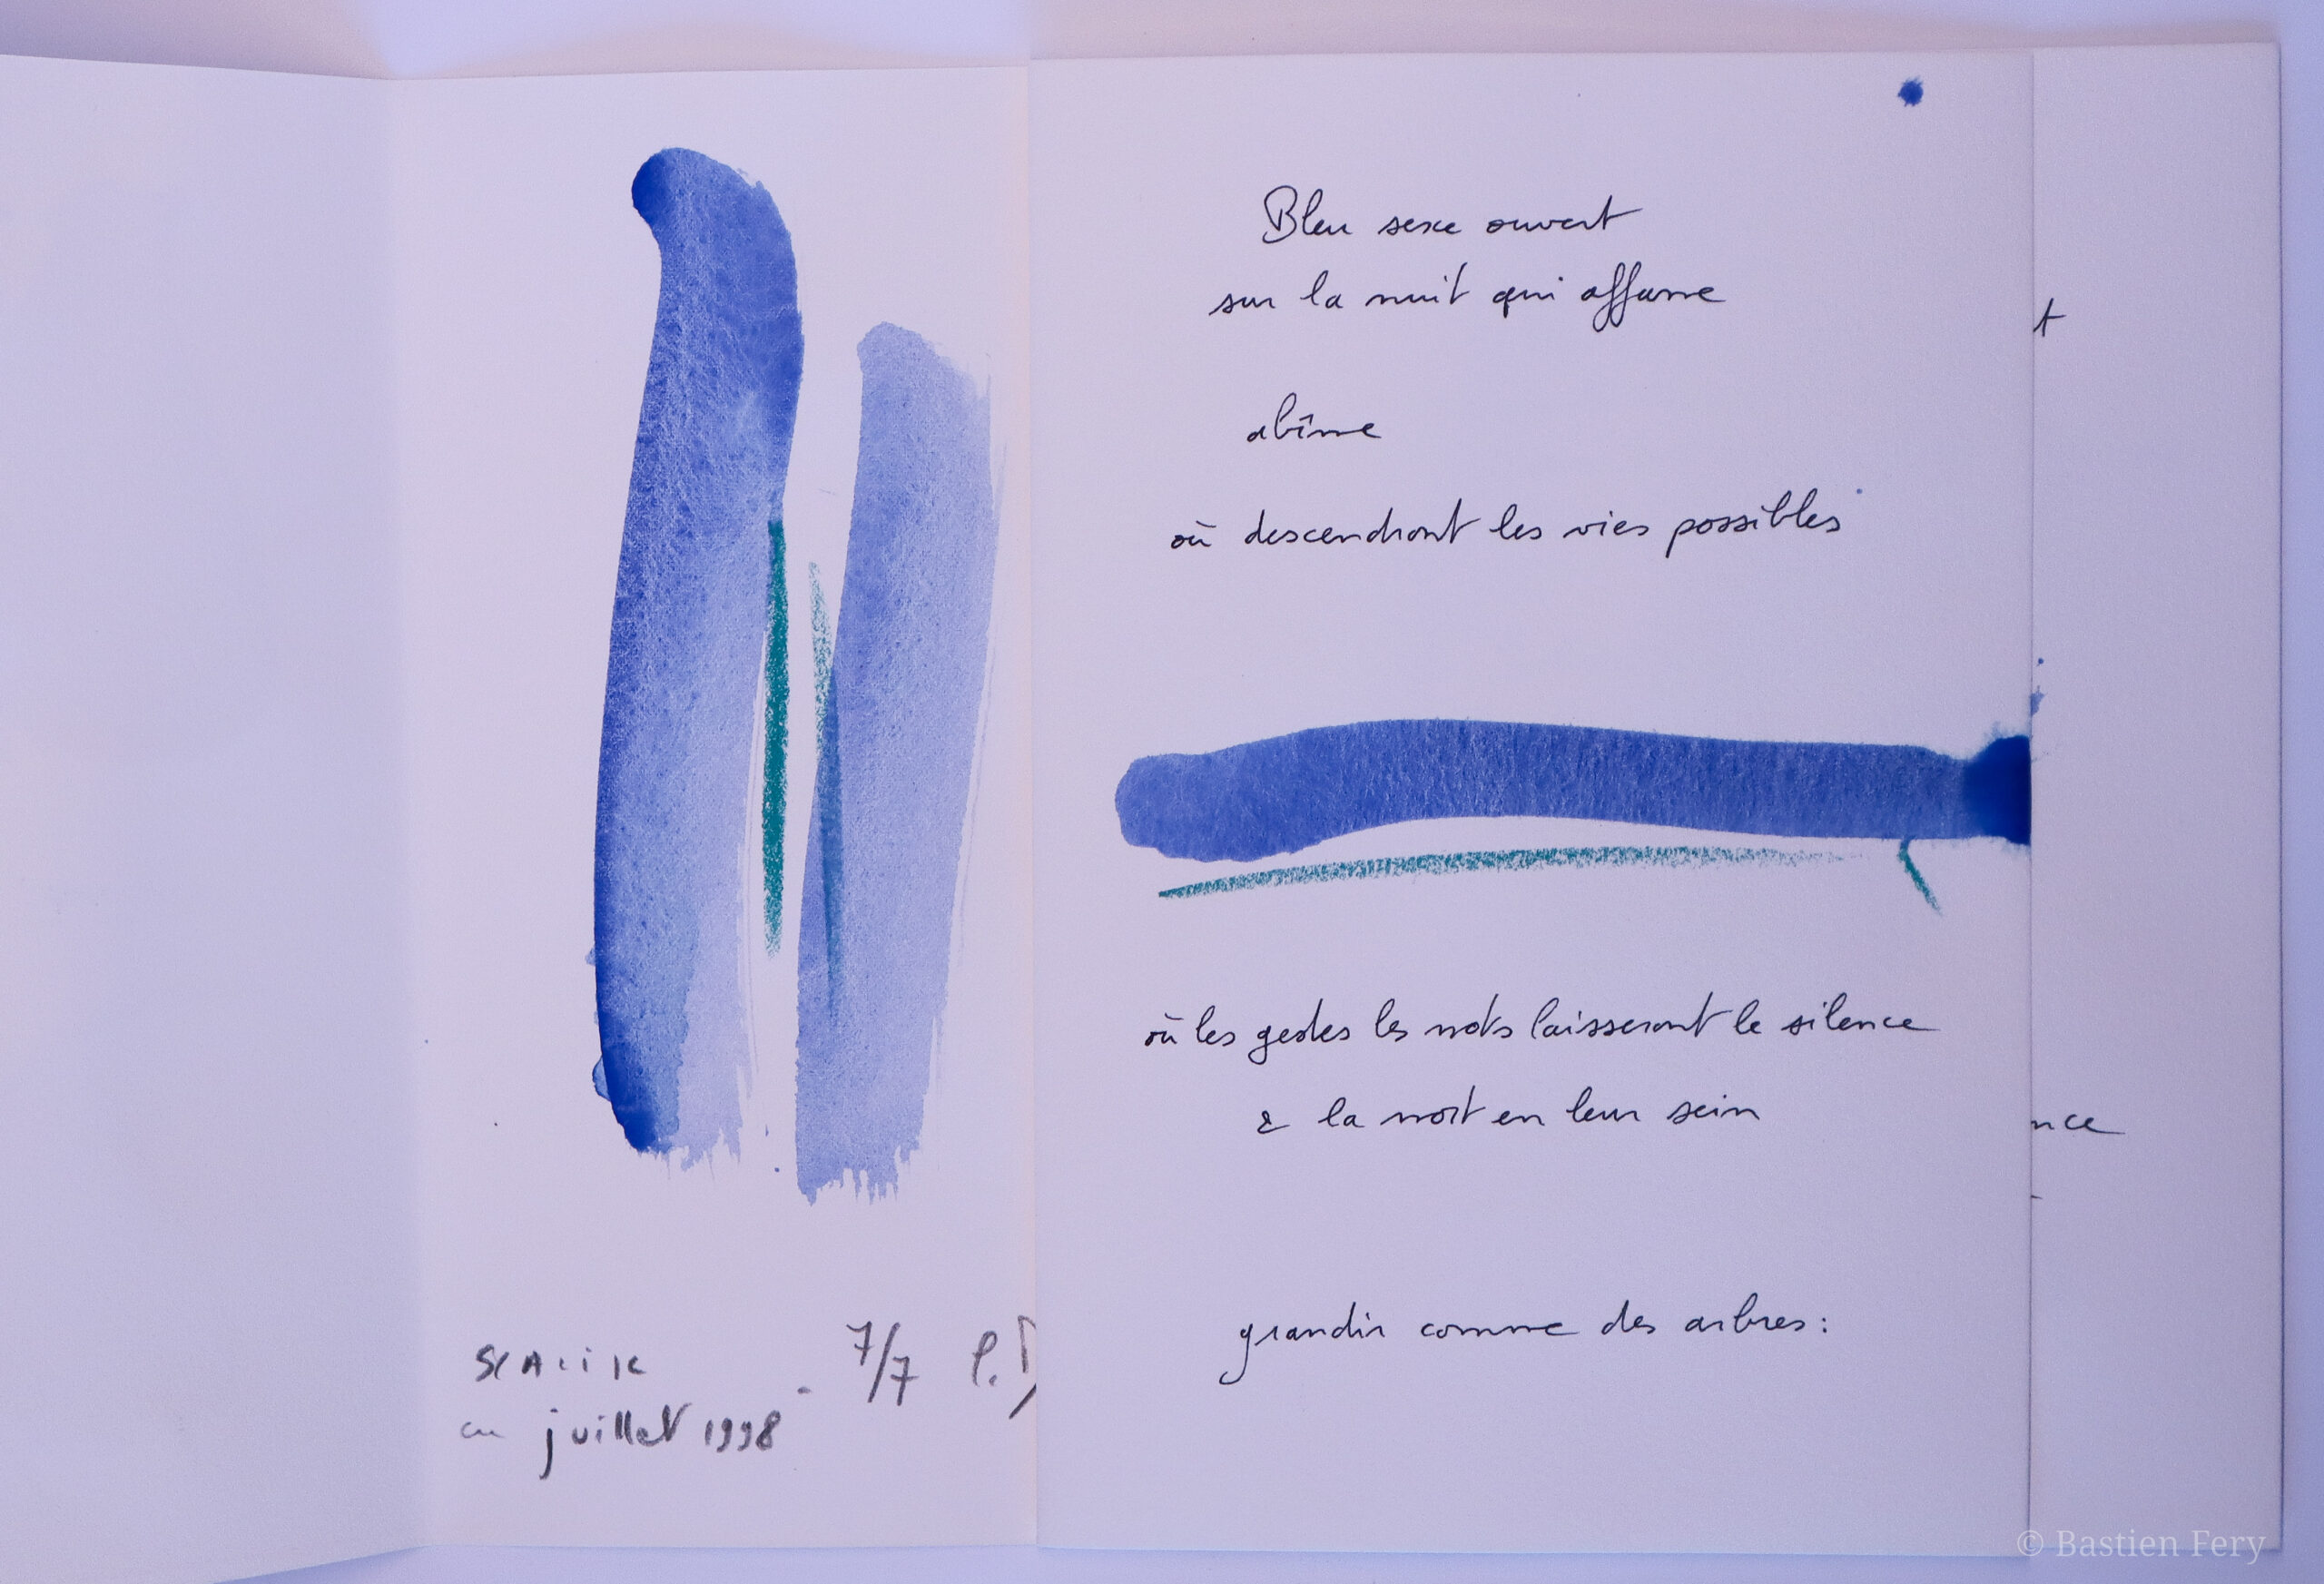 Bleu sexe ouvert
sur la nuit qui affame
abîme
où descendront les vies possibles
où les gestes les mots laisseront le silence
& la mort en leur sein
grandir comme des arbres :
juillet 1998 - 7/7 P.
t
nce
© Bastien Fery